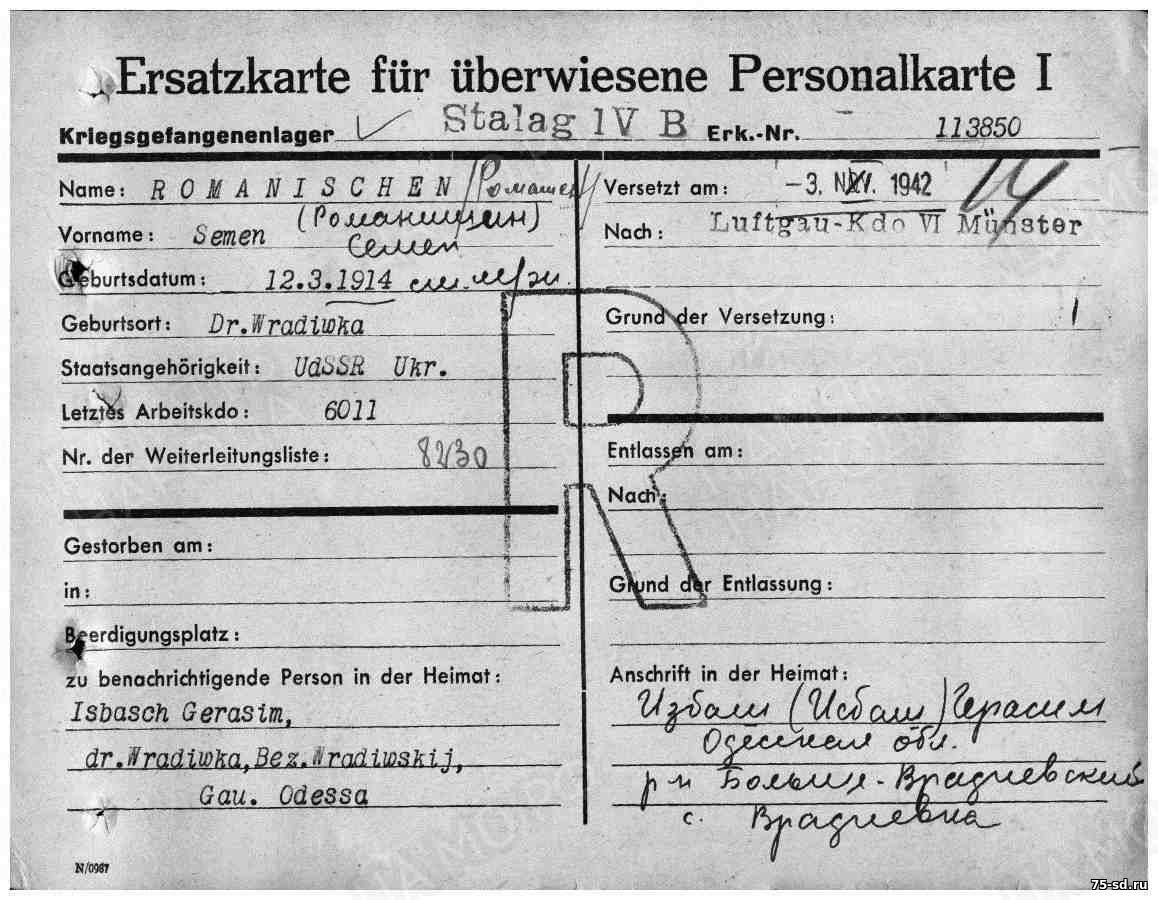 Ersatzkarte für überwiesene Personalkarte I
Kriegsgefangenenlager Stalag IV B Erk.-Nr. 113850
Name: ROMANISCHEN
(Романишин)
Vorname: Semen
Семен
Geburtsdatum: 12.3.1914
Geburtsort: Dr.Wradiwka
Staatsangehörigkeit: UdSSR Ukr.
Letztes Arbeitskdo: 6011
Nr. der Weiterleitungsliste: 8230
Gestorben am:
in:
Beerdigungsplatz:
zu benachrichtigende Person in der Heimat:
Isbasch Gerasim,
dr.Wradiwka,Bez.Wradiwskij,
Gau. Odessa
N/0987
Versetzt am: -3. 1942
Nach: Luftgau-Kdo VI Münster
Grund der Versetzung:
Entlassen am:
Nach:
Grund der Entlassung:
Anschrift in der Heimat:
Избаш (Исбаш) Герасим
Одесская обл.
р-н Больше-Врадиевский
с. Врадиевка
R
75-sd.ru